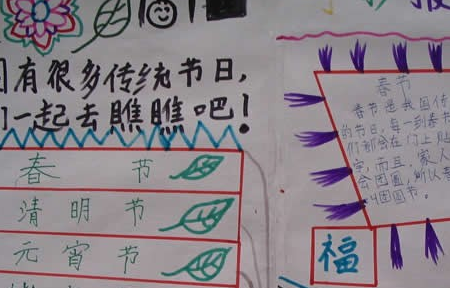 报
国有很多传统节日,
们一起去瞧瞧吧!
春节
清明节
元宵节
春节
春节是我国传
的节日,每一到春节
们都会在门上贴
字,而且,家人
会团圆,所以春
叫团圆节。
福